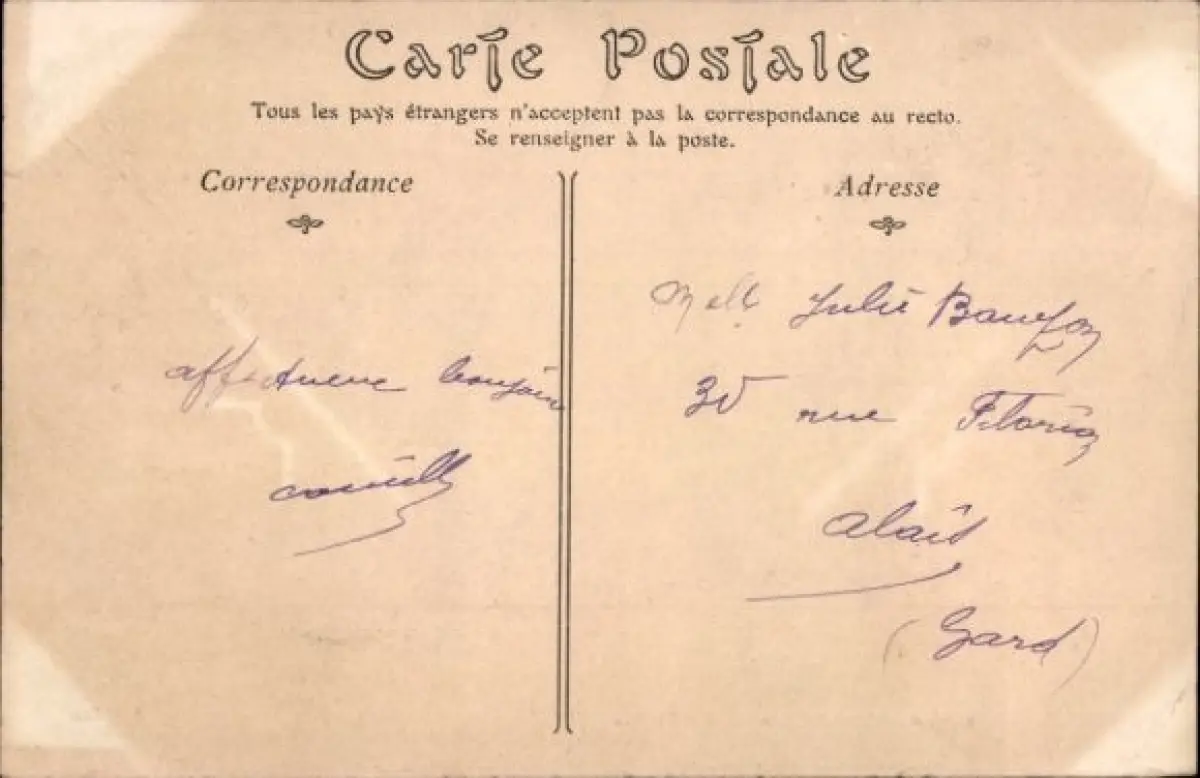 Carte Postale
Tous les pays étrangers n'acceptent pas la correspondance au recto.
Se renseigner à la poste.
Correspondance
affectueux bonjour
Adresse
Melle Julie
30 rue
Alais
(Gard)